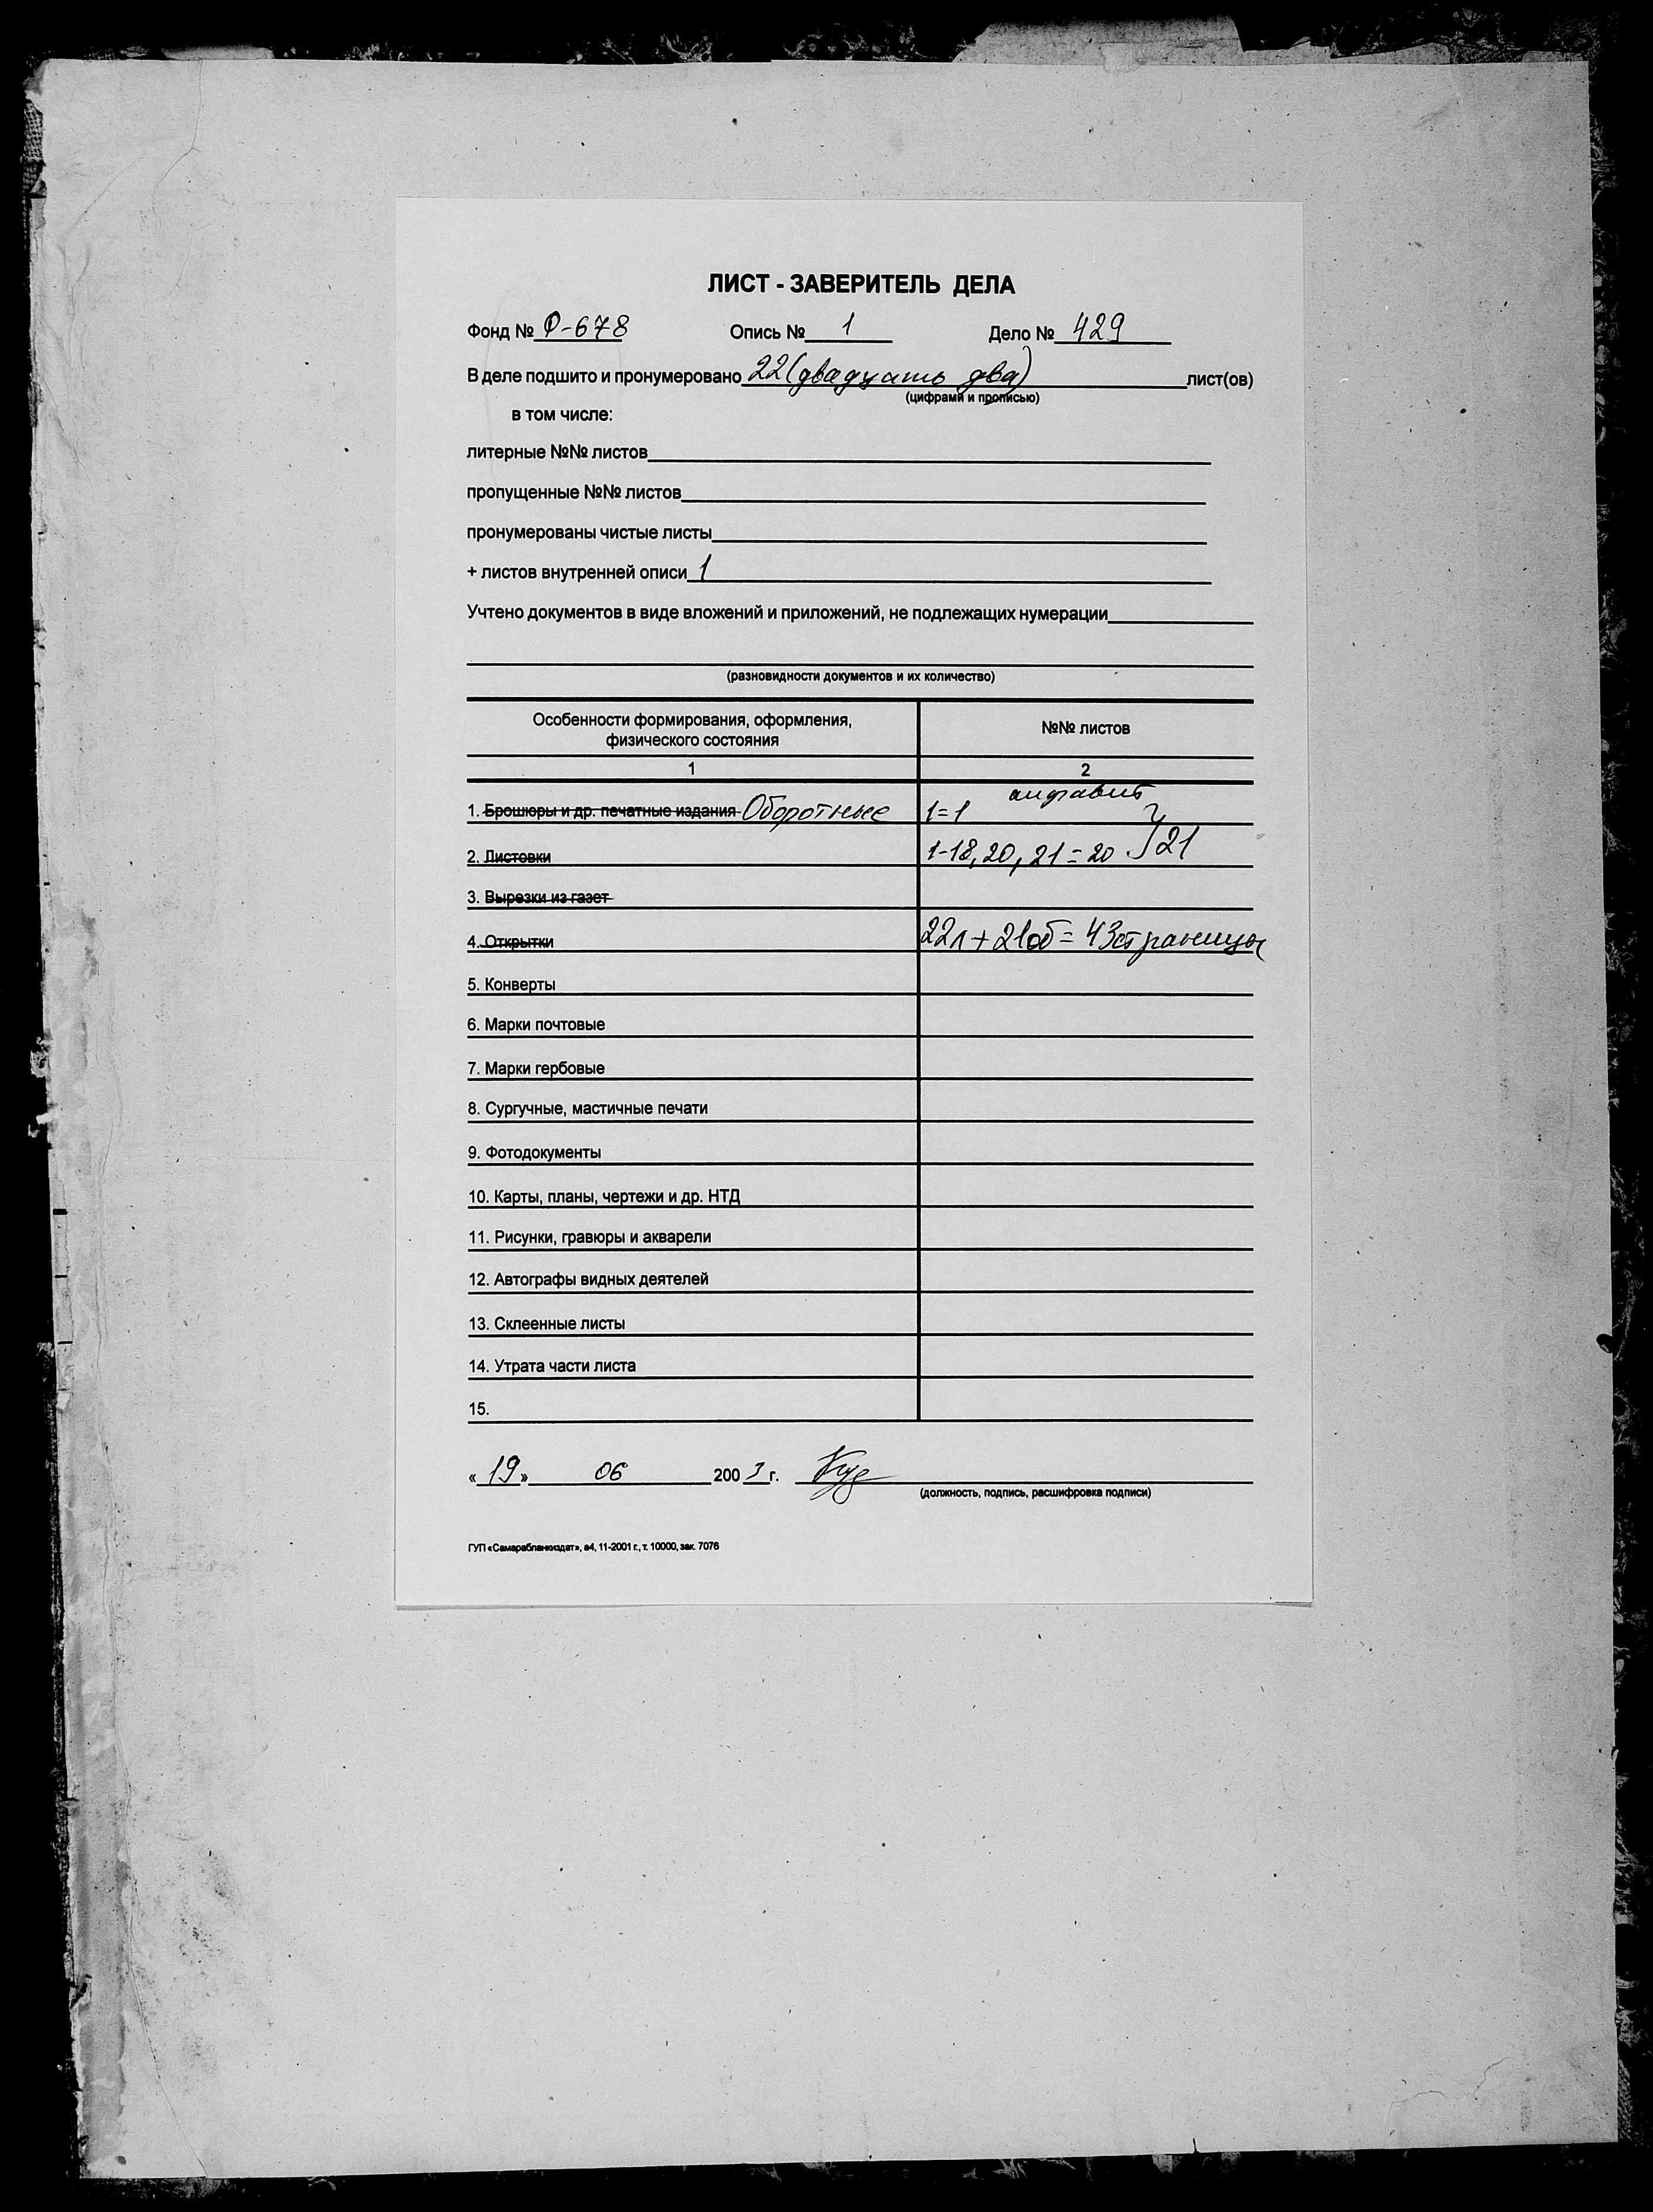 ЛИСТ - ЗАВЕРИТЕЛЬ ДЕЛА
Фонд № Ф-678 Опись № 1 Дело № 429
В деле подшито и пронумеровано 22 (двадцать два) лист(ов)
(цифрами и прописью)
в том числе:
литерные №№ листов
пропущенные №№ листов
пронумерованы чистые листы
+ листов внутренней описи 1
Учтено документов в виде вложений и приложений, не подлежащих нумерации
(разновидности документов и их количество)
Особенности формирования, оформления, №№ листов
физического состояния
1 2
алфавит
1. Брошюры и др. печатные издания Оборотные 1=1
2. Листовки 1-18, 20, 21 = 20 } 21
3. Вырезки из газет
4. Открытки 22л + 21об = 43 страницы
5. Конверты
6. Марки почтовые
7. Марки гербовые
8. Сургучные, мастичные печати
9. Фотодокументы
10. Карты, планы, чертежи и др. НТД
11. Рисунки, гравюры и акварели
12. Автографы видных деятелей
13. Склеенные листы
14. Утрата части листа
15.
«19» 06 2003 г.
(должность, подпись, расшифровка подписи)
ГУП «Самарабланкиздат», а4, 11-2001 г., т. 10000, зак. 7076